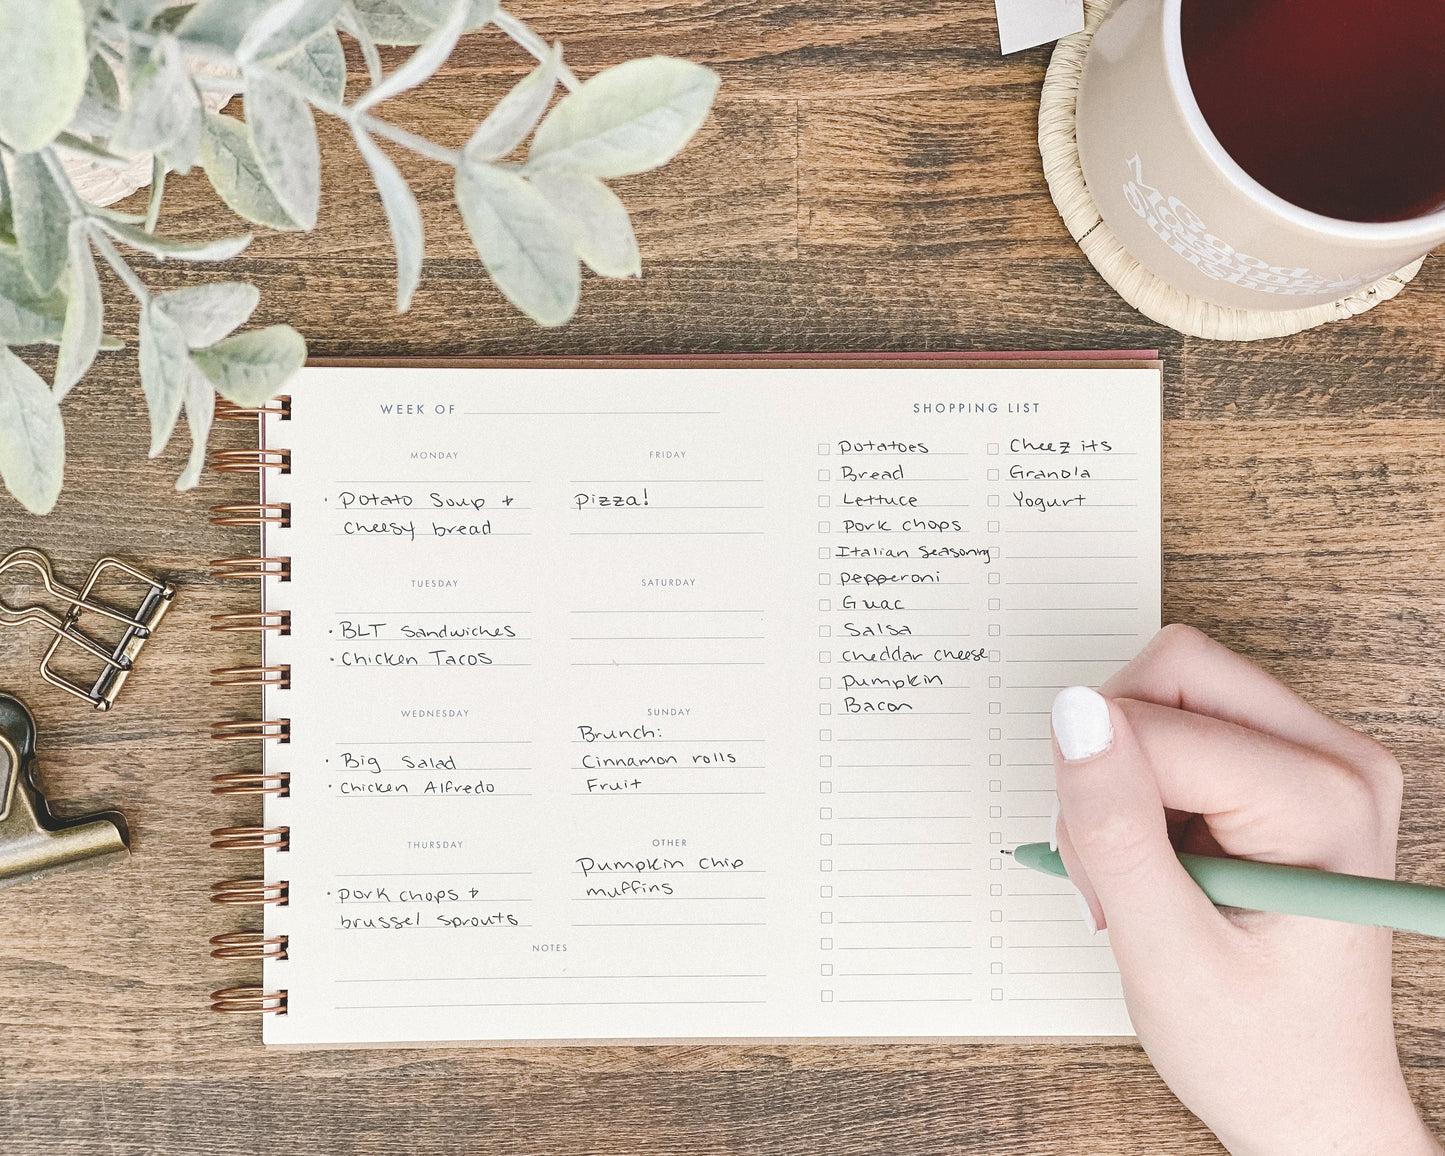 WEEK OF
MONDAY
· Potato Soup +
cheesy bread
TUESDAY
· BLT Sandwiches
· Chicken Tacos
WEDNESDAY
· Big Salad
· Chicken Alfredo
THURSDAY
· pork chops +
brussel sprouts
FRIDAY
pizza!
SATURDAY
SUNDAY
Brunch:
Cinnamon rolls
Fruit
OTHER
Pumpkin chip
muffins
NOTES
SHOPPING LIST
potatoes
Bread
Lettuce
pork chops
Italian Seasoning
pepperoni
Guac
Salsa
cheddar cheese
Pumpkin
Bacon
Cheez its
Granola
Yogurt